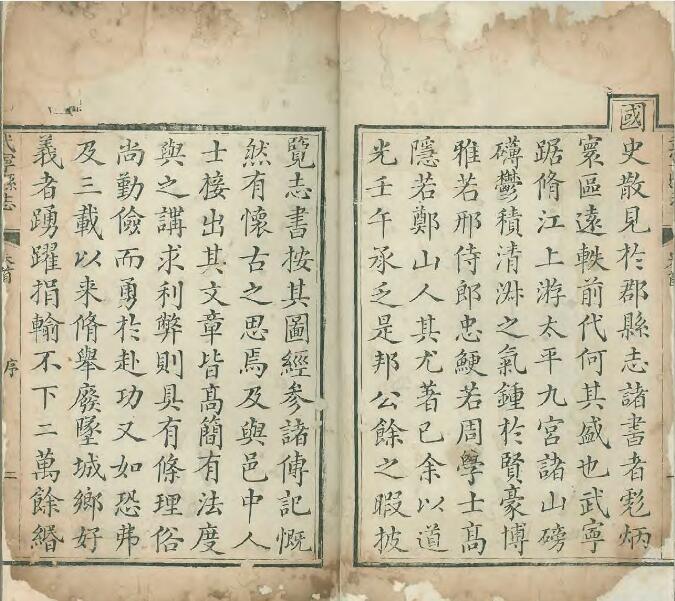 國史散見於郡縣志諸書者彪炳
寰區遠軼前代何其盛也武寧
踞脩江上游太平九宮諸山磅
礴鬱積清淑之氣鍾於賢豪博
雅若邢侍郎忠鯁若周學士高
隱若鄭山人其尤著已余以道
光壬午承乏是邦公餘之暇披
覽志書按其圖經參諸傳記慨
然有懷古之思焉及與邑中人
士接出其文章皆高簡有法度
與之講求利弊則具有條理俗
尚勤儉而勇於赴功又如恐弗
及三載以來脩舉廢墜城鄉好
義者踴躍捐輸不下二萬餘緡
武寧縣志
卷首
序
二